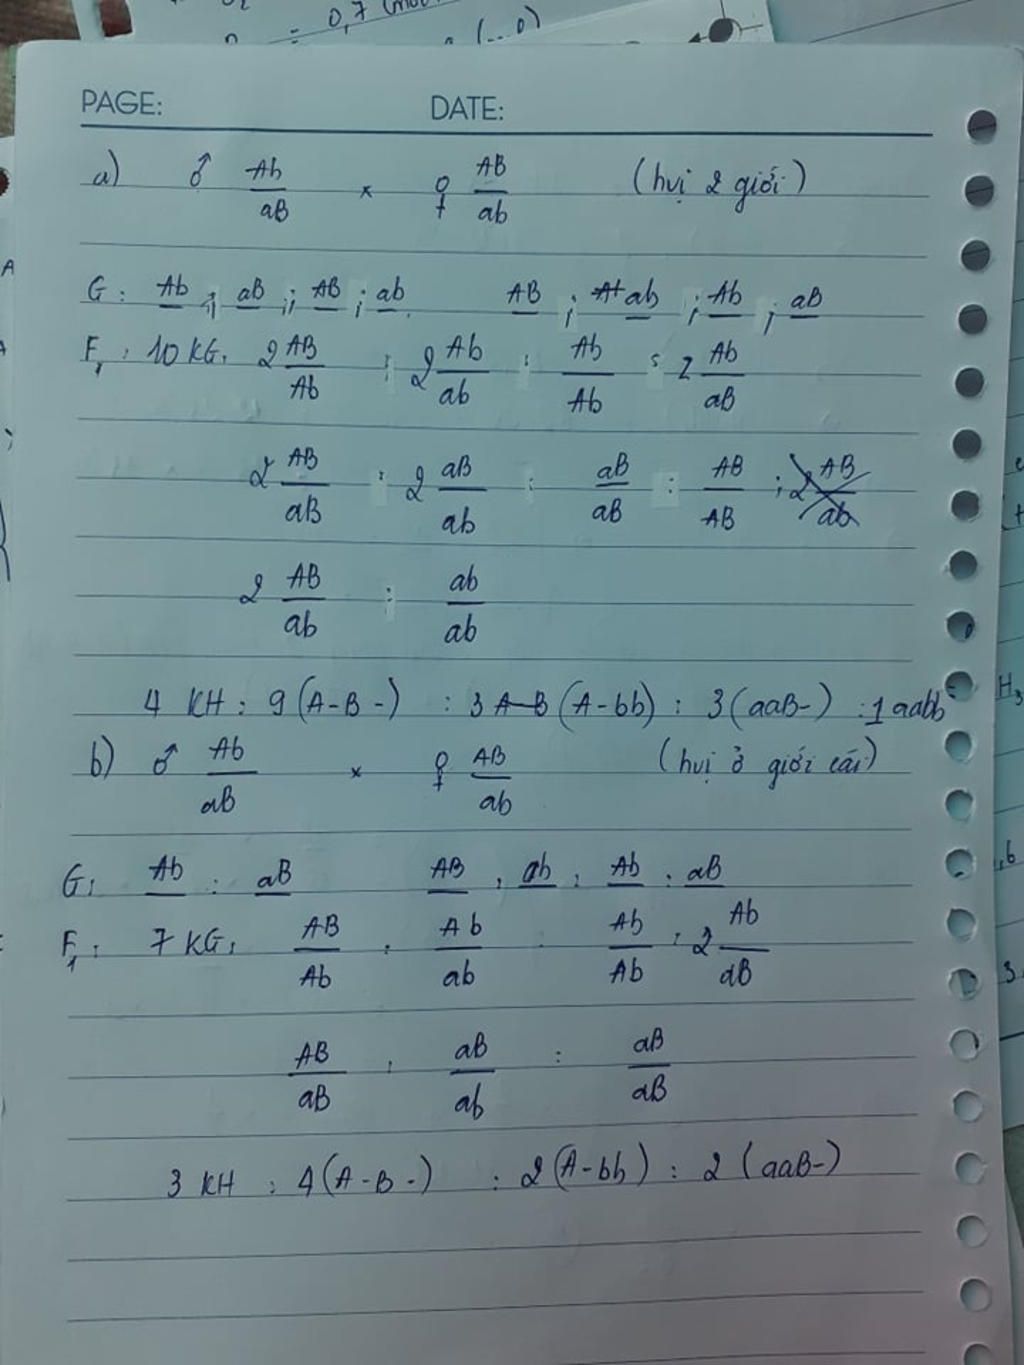 0,7 (mol
(...0)
PAGE: DATE:
a) ♂ Ab/aB × ♀ AB/ab (hvị 2 giới)
G: Ab ; aB ; AB ; ab. AB ; ab ; Ab ; aB
F1 : 10 KG: 2 AB/Ab : 2 Ab/ab : Ab/Ab : 2 Ab/aB
2 AB/aB : 2 aB/ab : aB/aB : AB/AB ; 2 AB/ab
2 AB/ab : ab/ab
4 KH : 9 (A-B-) : 3 A-B (A-bb) : 3 (aaB-) : 1 aabb
b) ♂ Ab/aB × ♀ AB/ab (hvị ở giới cái)
G: Ab : aB AB , ab : Ab : aB
F1 : 7 KG: AB/Ab : Ab/ab : Ab/Ab : 2 Ab/aB
AB/aB : aB/ab : aB/aB
3 KH : 4 (A-B-) : 2 (A-bb) : 2 (aaB-)